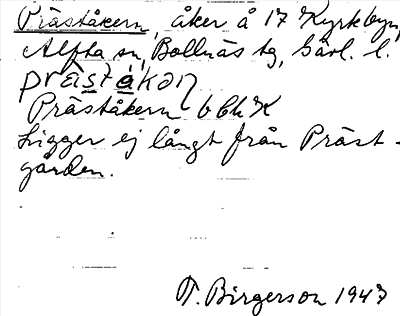 Präståkern, åker å 17 Kyrkbyn,
Alfta sn, Bollnäs tg, Gävl. l.
präståkən
Präståkern bbhK
Ligger ej långt från Präst-
gården.
T. Birgerson 1947